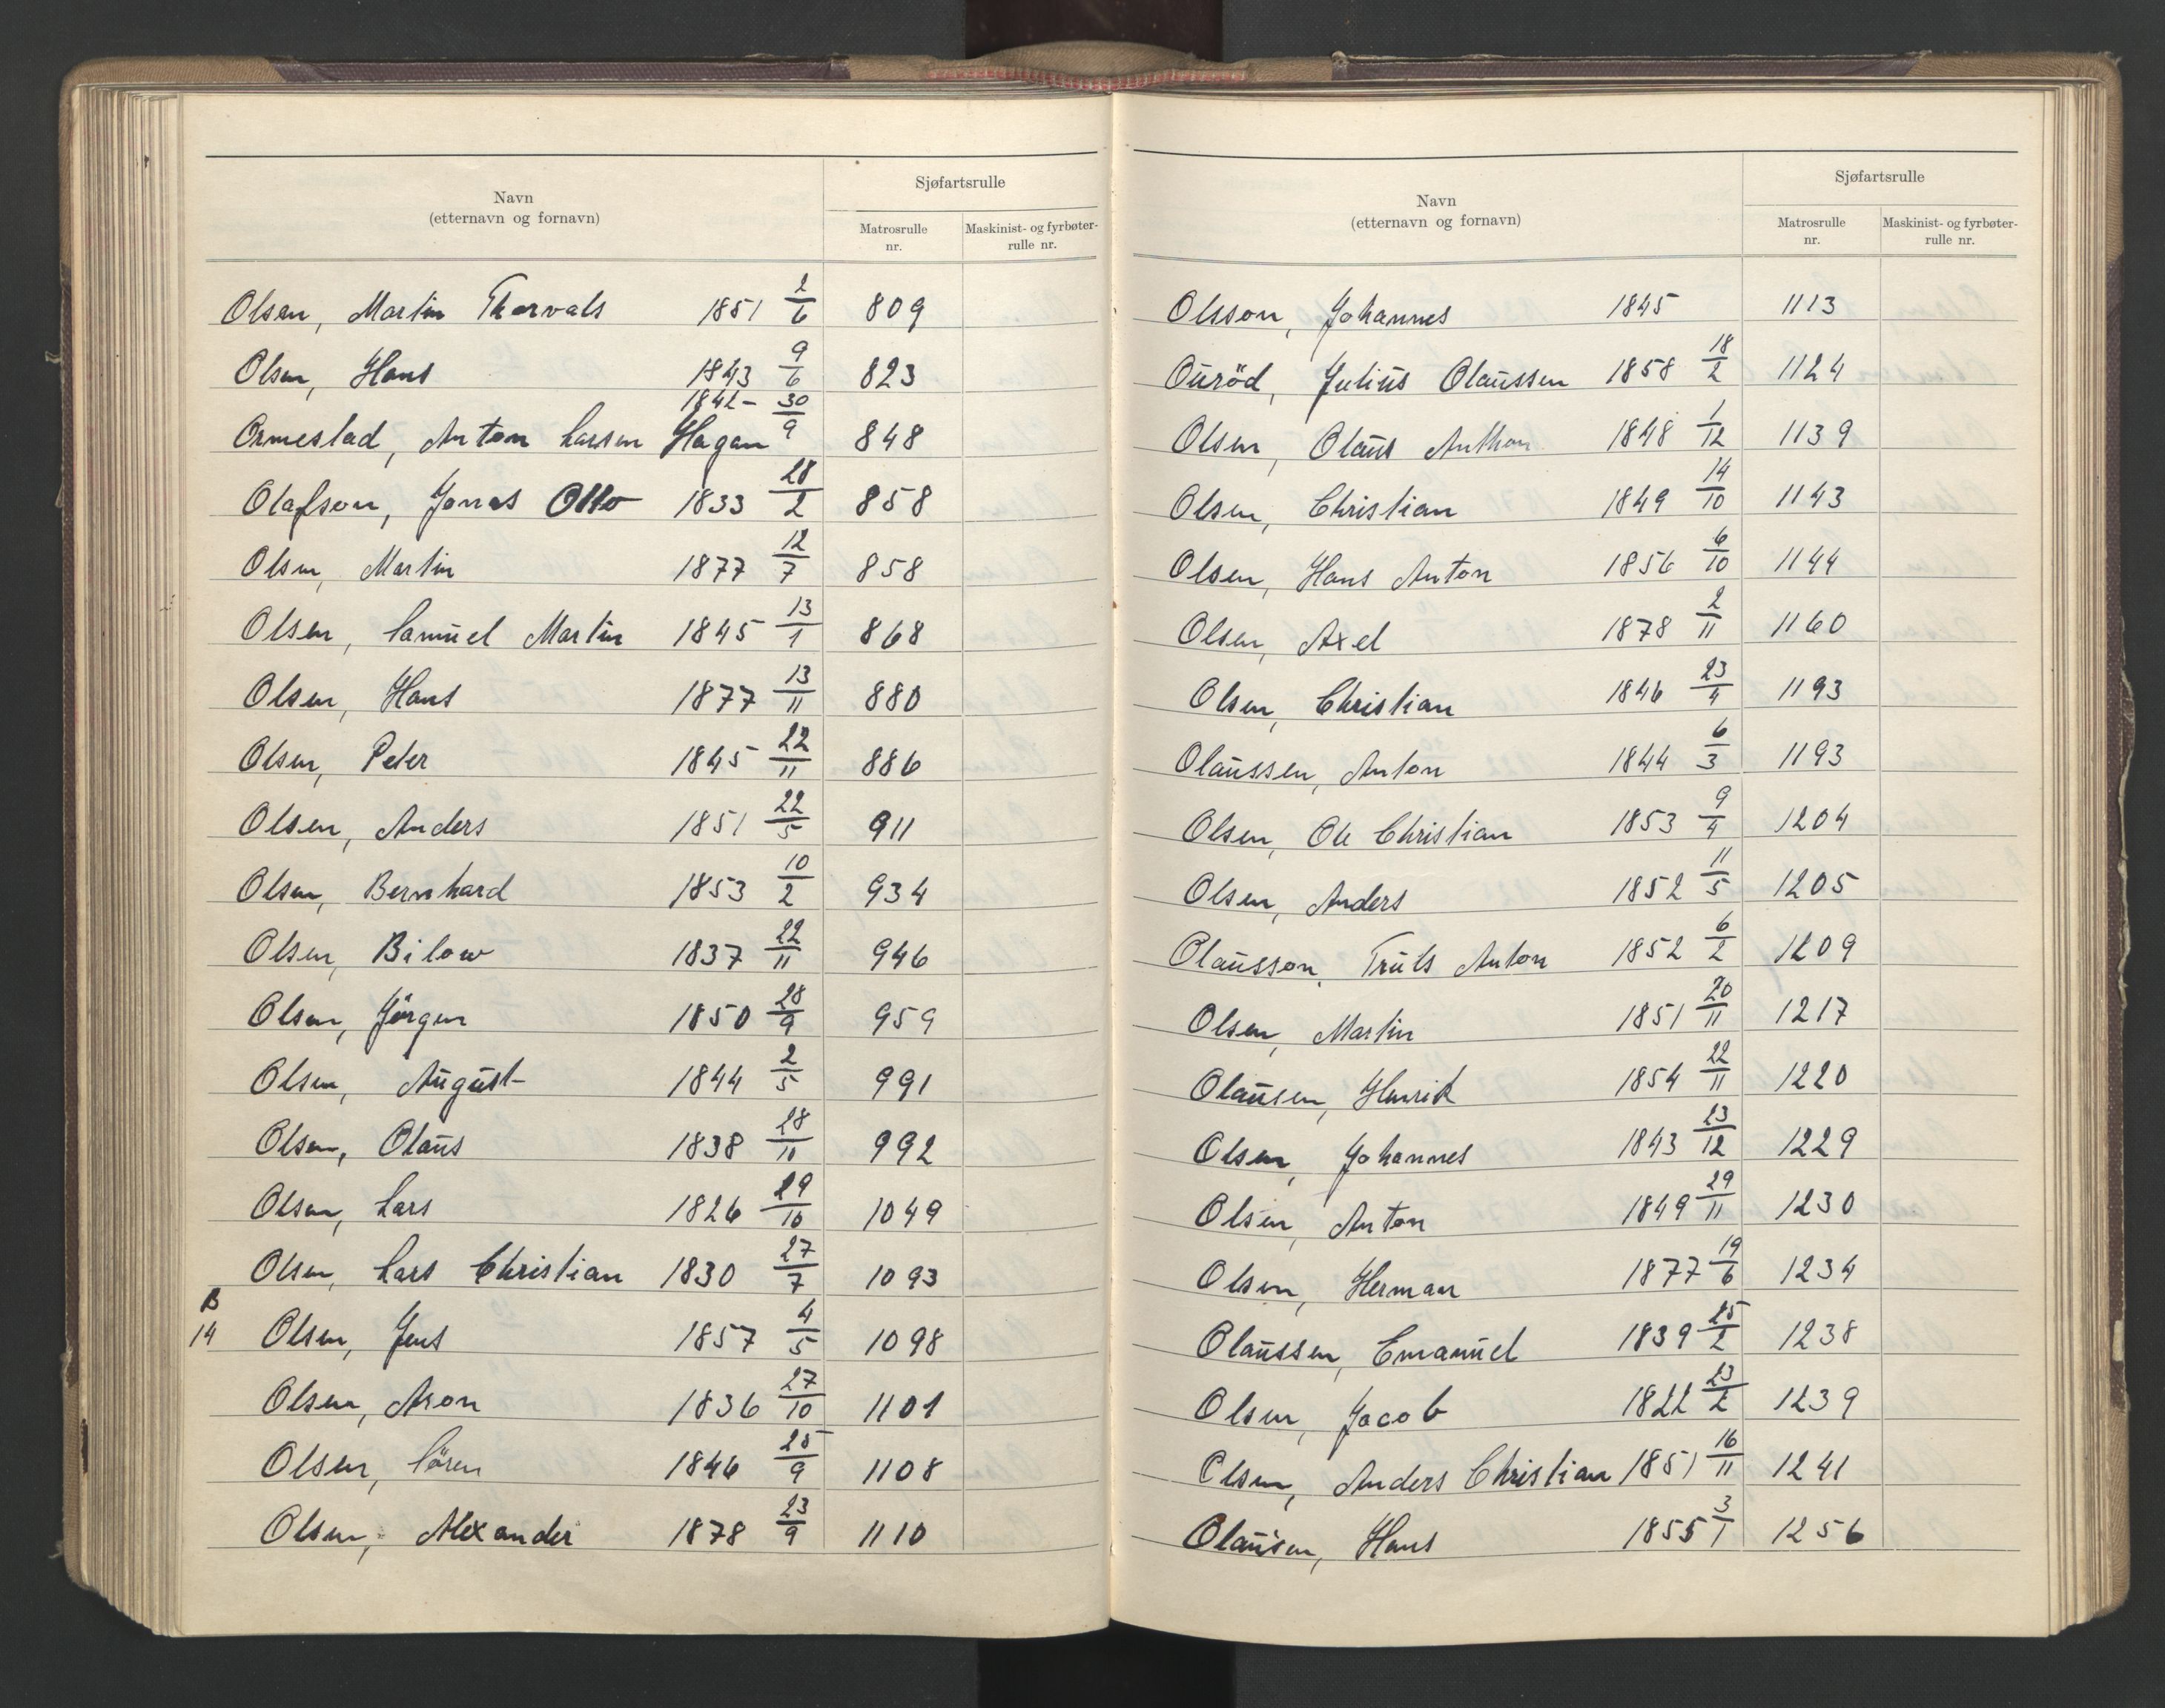 Navn
(etternavn og fornavn)
Sjøfartsrulle
Matrosrulle nr.
Maskinist- og fyrbøter-rulle nr.
Olsen, Martin Thorvals 1851 2/6 809
Olsen, Hans 1843 9/6 823
1842- 30/9
Ormestad, Anton Larsen Hagan 848
Olafson, Jonas Otto 1833 28/2 858
Olsen, Martin 1877 12/7 858
Olsen, Samuel Martin 1845 13/1 868
Olsen, Hans 1877 13/11 880
Olsen, Peter 1845 22/11 886
Olsen, Anders 1851 22/5 911
Olsen, Bernhard 1853 10/2 934
Olsen, Bilow 1837 22/11 946
Olsen, Jörgen 1850 28/9 959
Olsen, August 1844 2/5 991
Olsen, Olaus 1838 28/11 992
Olsen, Lars 1826 29/10 1049
Olsen, Lars Christian 1830 27/7 1093
B
14 Olsen, Jens 1857 4/5 1098
Olsen, Aron 1836 27/10 1101
Olsen, Sören 1846 25/9 1108
Olsen, Alexander 1878 23/9 1110
Navn
(etternavn og fornavn)
Sjøfartsrulle
Matrosrulle nr.
Maskinist- og fyrbøter-rulle nr.
Olsson, Johannes 1845 1113
Ouröd, Julius Olaussen 1858 18/2 1124
Olsen, Olaus Anthon 1848 1/12 1139
Olsen, Christian 1849 14/10 1143
Olsen, Hans Anton 1856 6/10 1144
Olsen, Axel 1878 2/11 1160
Olsen, Christian 1846 23/4 1193
Olaussen, Anton 1844 6/3 1193
Olsen, Ole Christian 1853 9/4 1204
Olsen, Anders 1852 11/5 1205
Olausson, Truls Anton 1852 6/2 1209
Olsen, Martin 1851 20/11 1217
Olausen, Henrik 1854 22/11 1220
Olsen, Johannes 1843 23/12 1229
Olsen, Anton 1849 29/11 1230
Olsen, Herman 1877 19/6 1234
Olaussen, Emanuel 1839 25/2 1238
Olsen, Jacob 1822 23/2 1239
Olsen, Anders Christian 1851 16/11 1241
Olausen, Hans 1855 3/1 1256